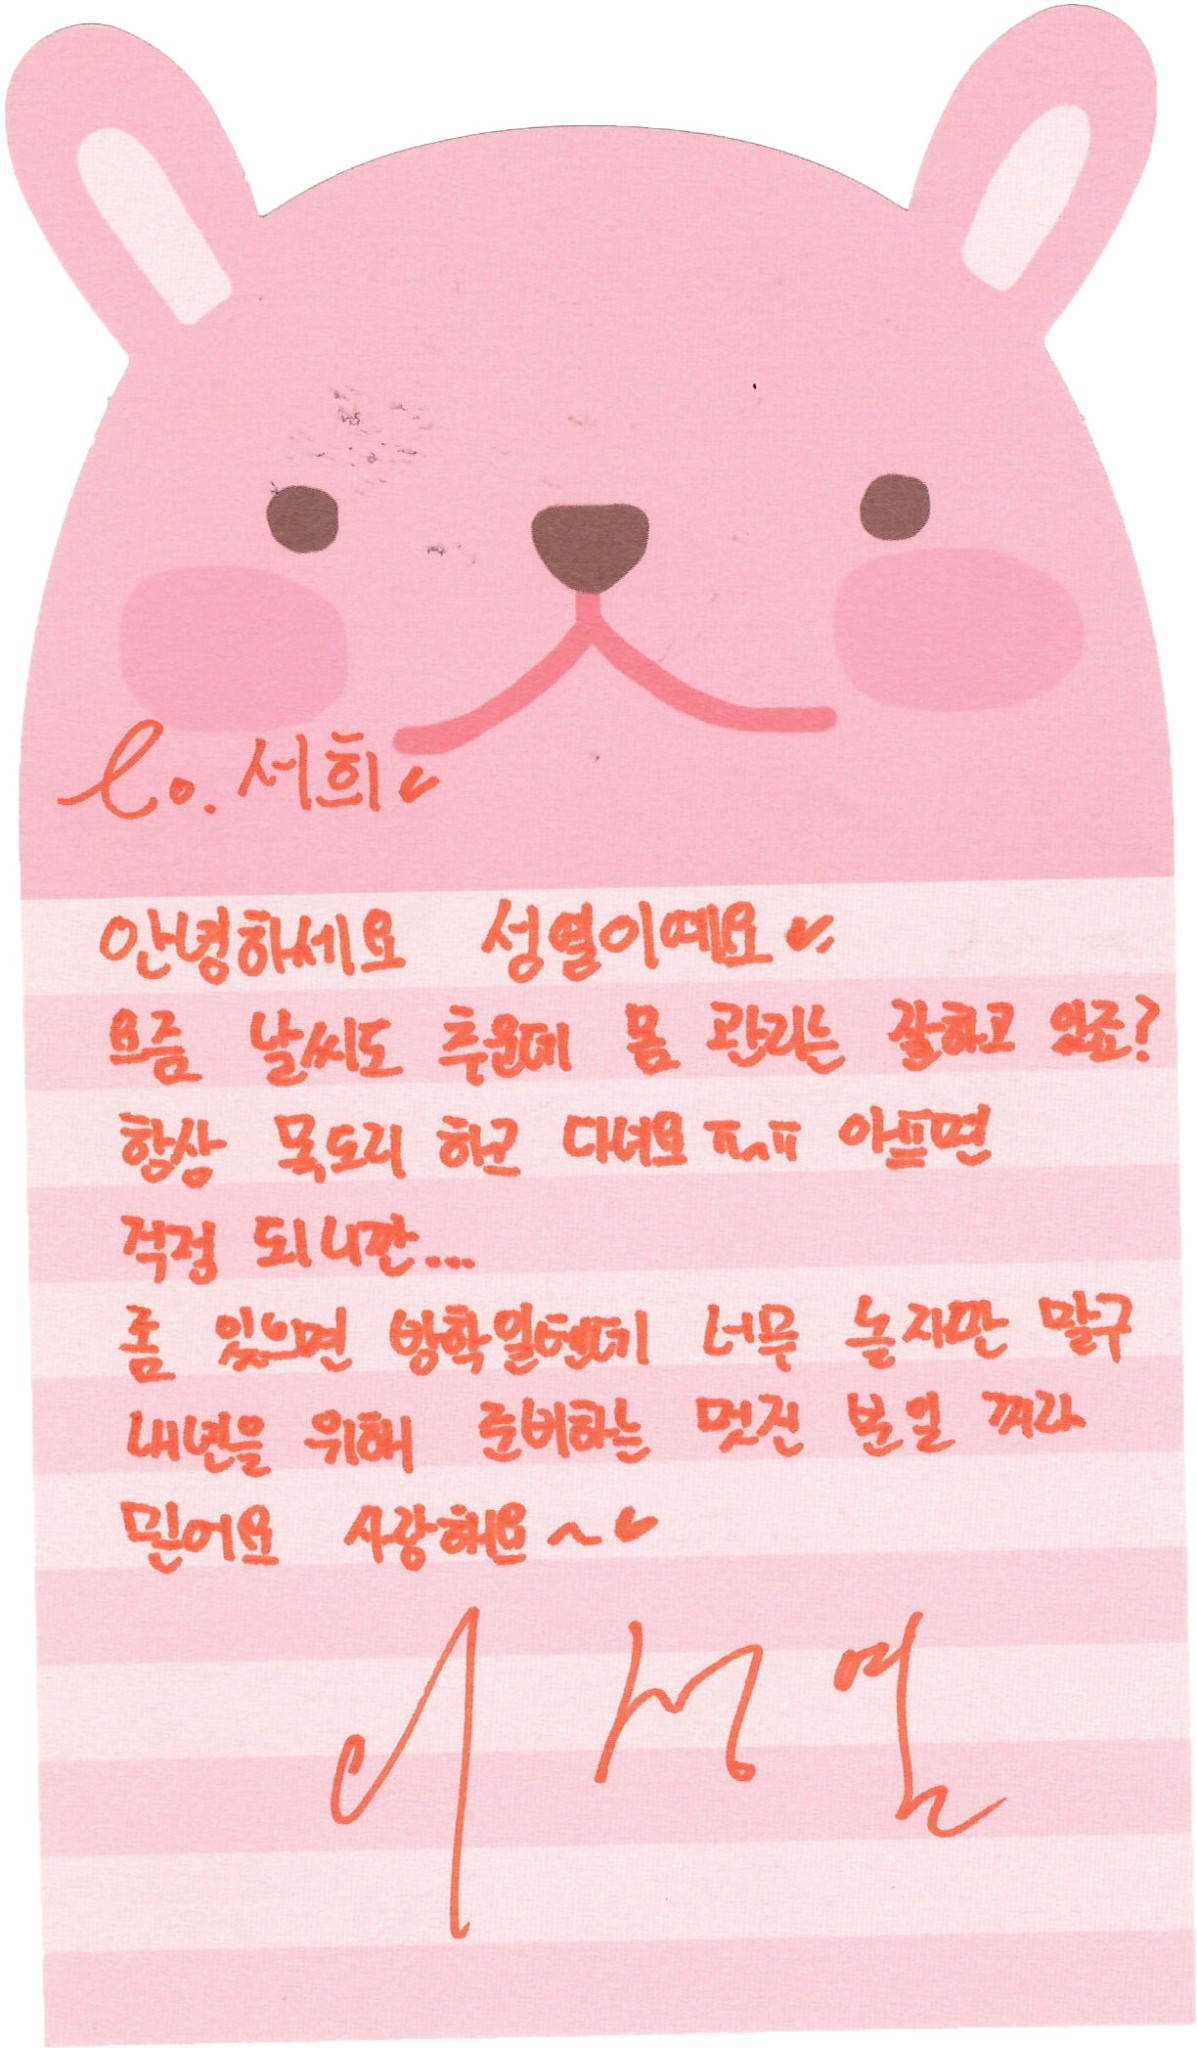 to. 서희♥
안녕하세요 성열이예요♥
요즘 날씨도 추운데 몸 관리는 잘하고 있죠?
항상 목도리 하고 다녀요 ㅠㅅㅠ 아프면
걱정 되니깐...
좀 있으면 방학일텐데 너무 놀지만 말구
내년을 위해 준비하는 멋진 분일 꺼라
믿어요 사랑해요~♥
이성열